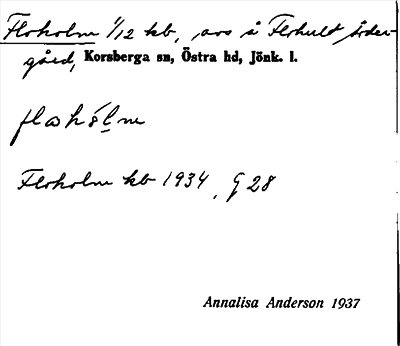 Floholm 1/12 kb, avs å Flohult söder-
gård, Korsberga sn, Östra hd, Jönk. l.
Floholm kb 1934, G 28
Annalisa Anderson 1937